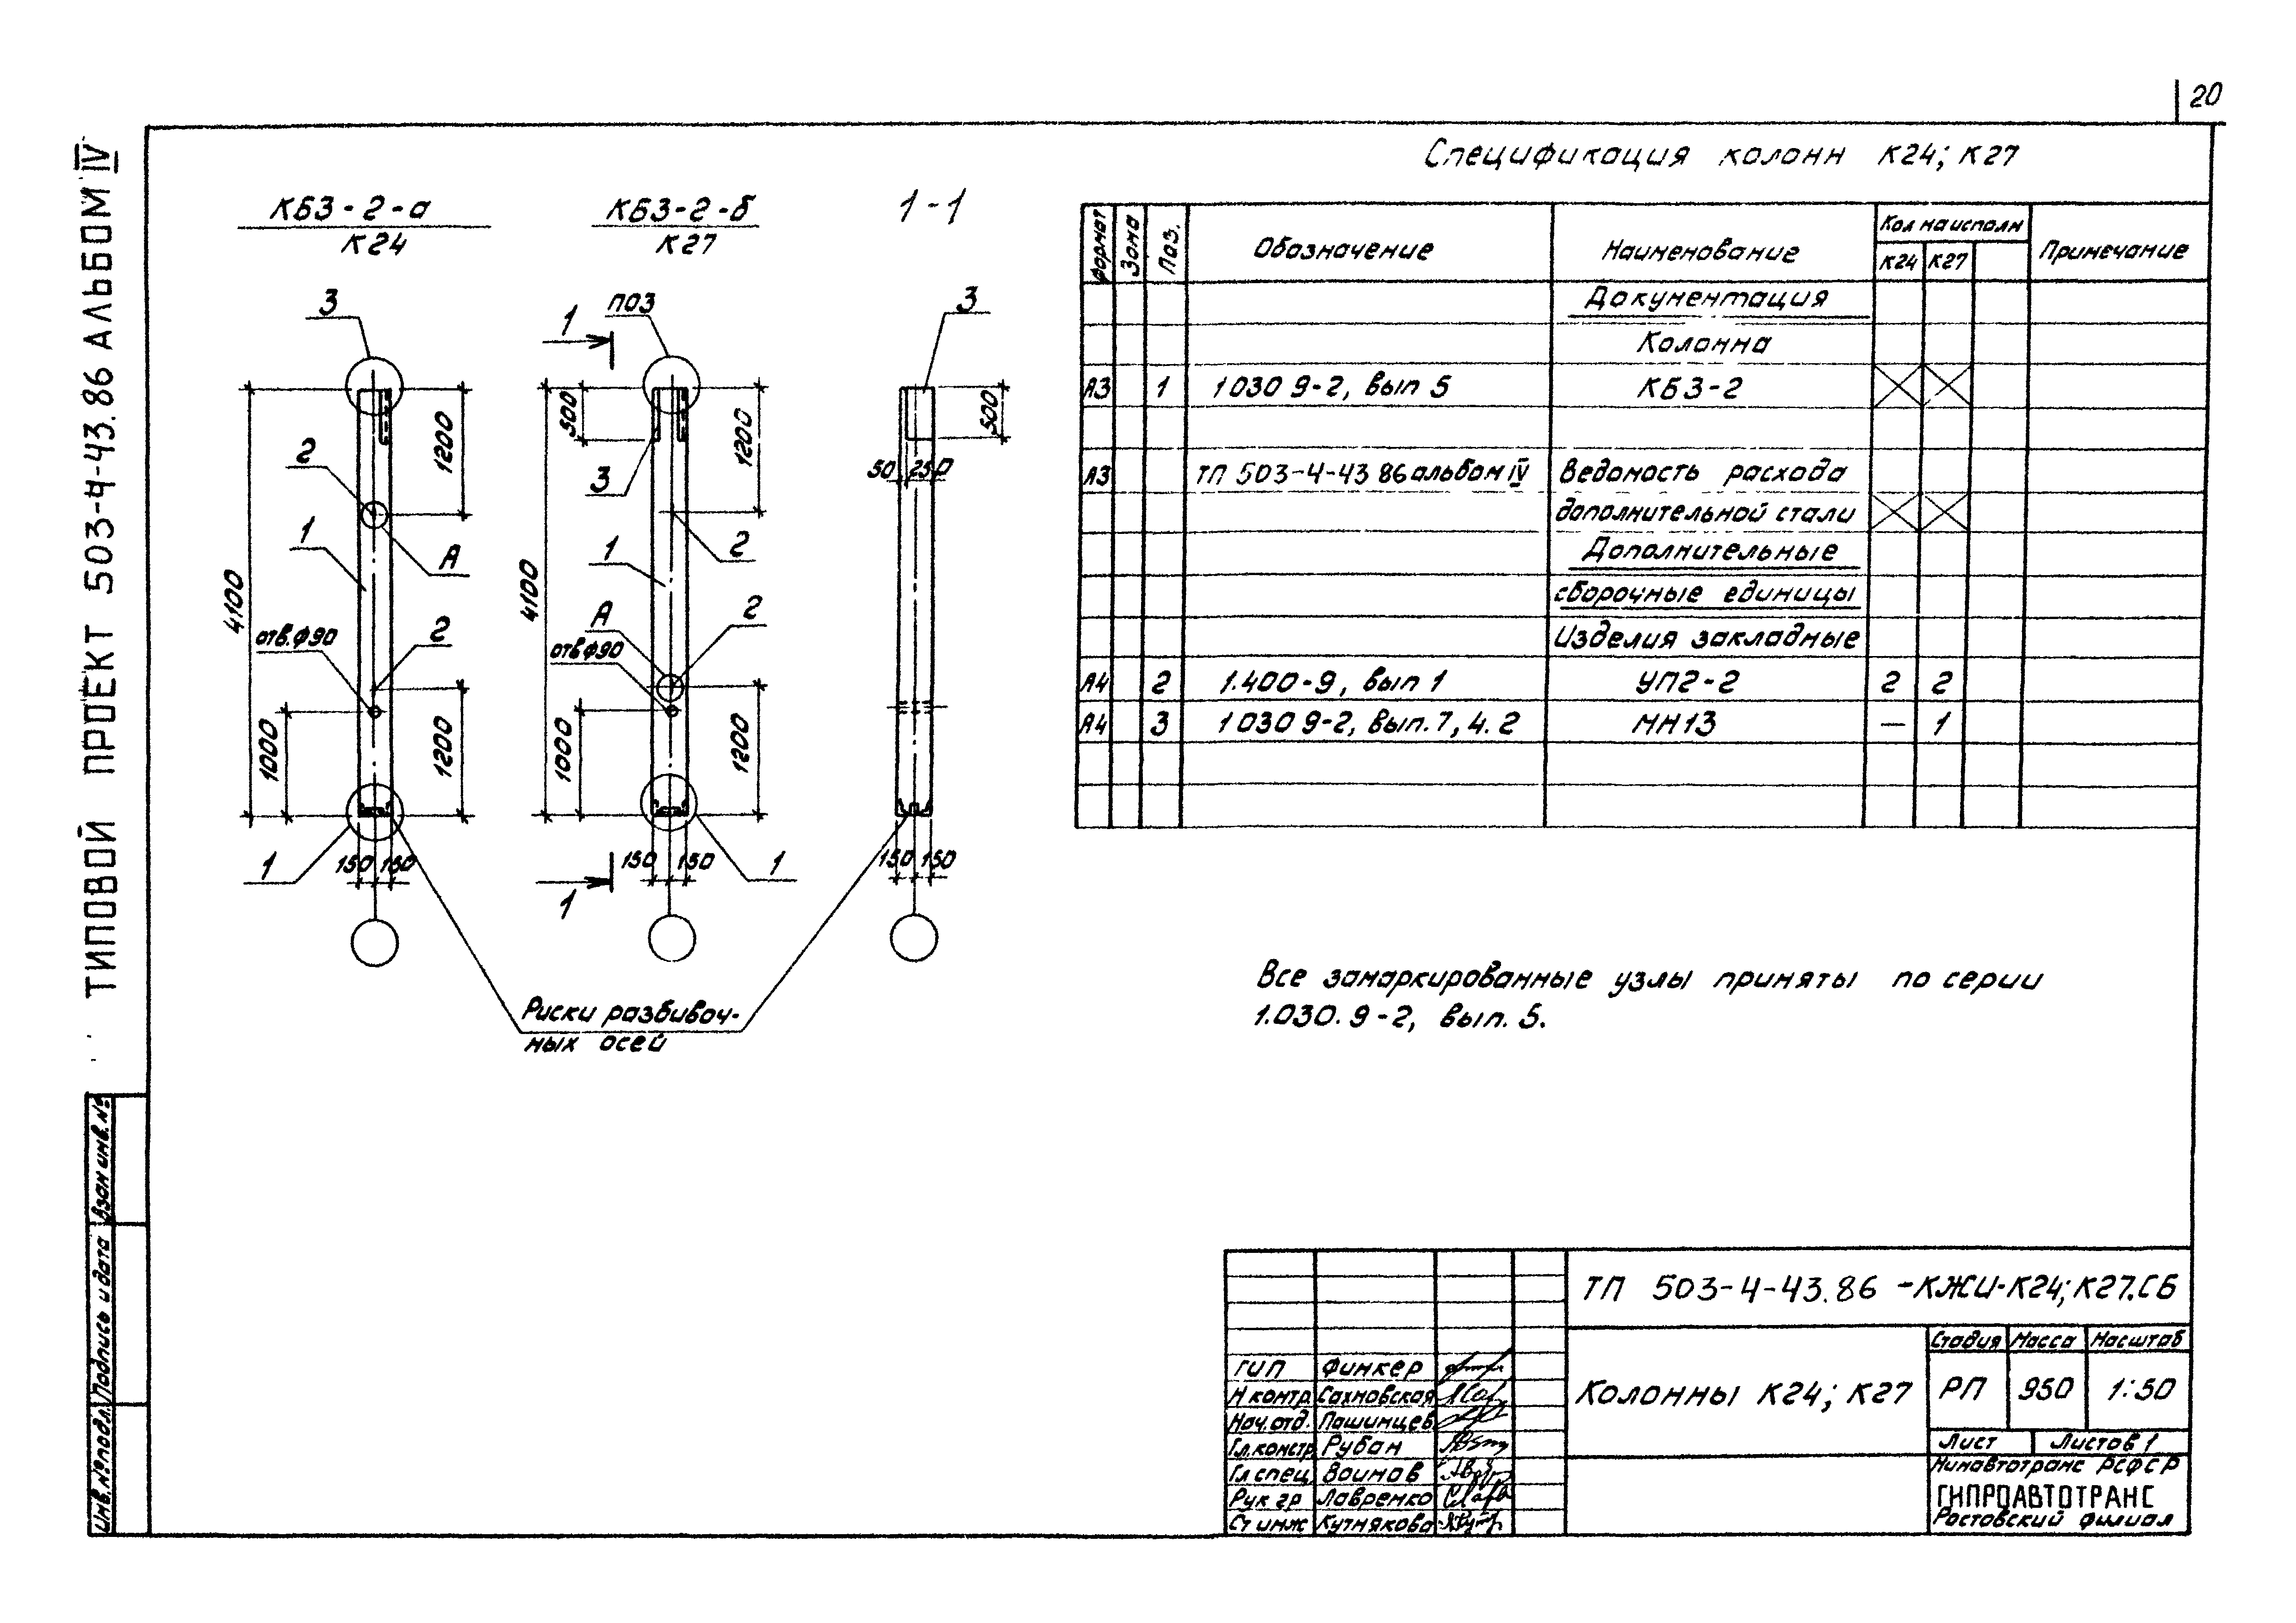 20
ТИПОВОЙ ПРОЕКТ 503-4-43.86 АЛЬБОМ IV
КБ3-2-а
К24
КБ3-2-б
К27
1-1
3
поз
1
3
500
1200
1200
500
2
3
50 250
1
А
1
2
4100
4100
отв.ф90
2
А
2
отвф90
1000
1200
1000
1200
1
150 150
150 150
1
150 150
1
Риски разбивоч-
ных осей
Спецификация колонн К24; К27
Формат Зона Поз. Обозначение Наименование Кол на исполн Примечание
К24 К27
Документация
Колонна
А3 1 1 030 9-2, вып 5 КБ3-2
А3 ТП 503-4-43 86 альбом IV Ведомость расхода
дополнительной стали
Дополнительные
сборочные единицы
Изделия закладные
А4 2 1.400-9, вып 1 УП2-2 2 2
А4 3 1 030 9-2, вып. 7, 4. 2 МН13 — 1
Все замаркированные узлы приняты по серии
1.030. 9-2, вып. 5.
Взам инв. №
Подпись и дата
Инв. № подл.
ТП 503-4-43.86 -КЖИ-К24; К27.СБ
Стадия Масса Масштаб
ГИП Финкер
Н контр. Сахновская
Колонны К24; К27 РП 950 1:50
Нач. отд. Пашинцев
Гл. констр Рубан
Лист Листов 1
Гл спец Воинов
Минавтотранс РСФСР
Рук гр Лавренко
ГИПРОАВТОТРАНС
Ст инж Кутнякова
Ростовский филиал